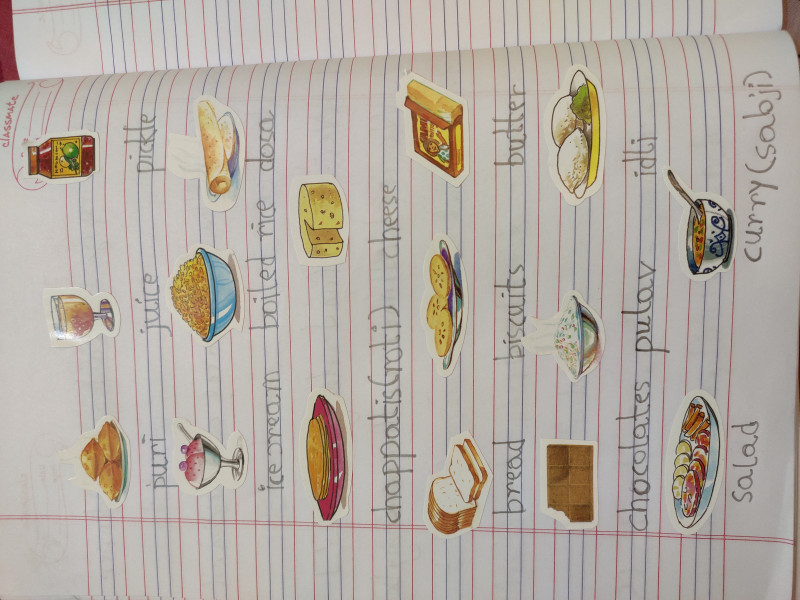 classmate
puri juice pickle
ice cream boiled rice dosa
chappatis(roti) cheese
bread biscuits butter
chocolates pulav idli
salad curry(sabji)